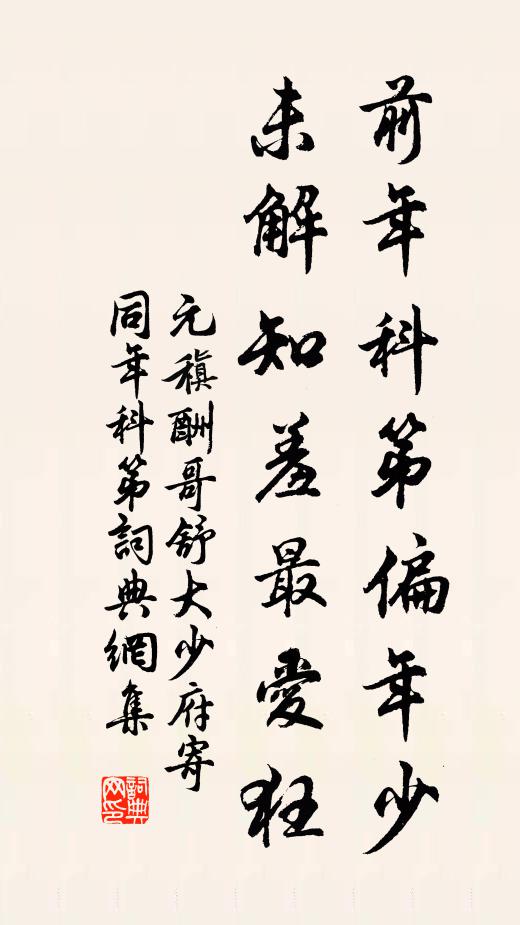 前年科第偏年少
未解知羞最愛狂
元稹酬哥舒大少府寄
同年科第詞典網集
詞典
网印